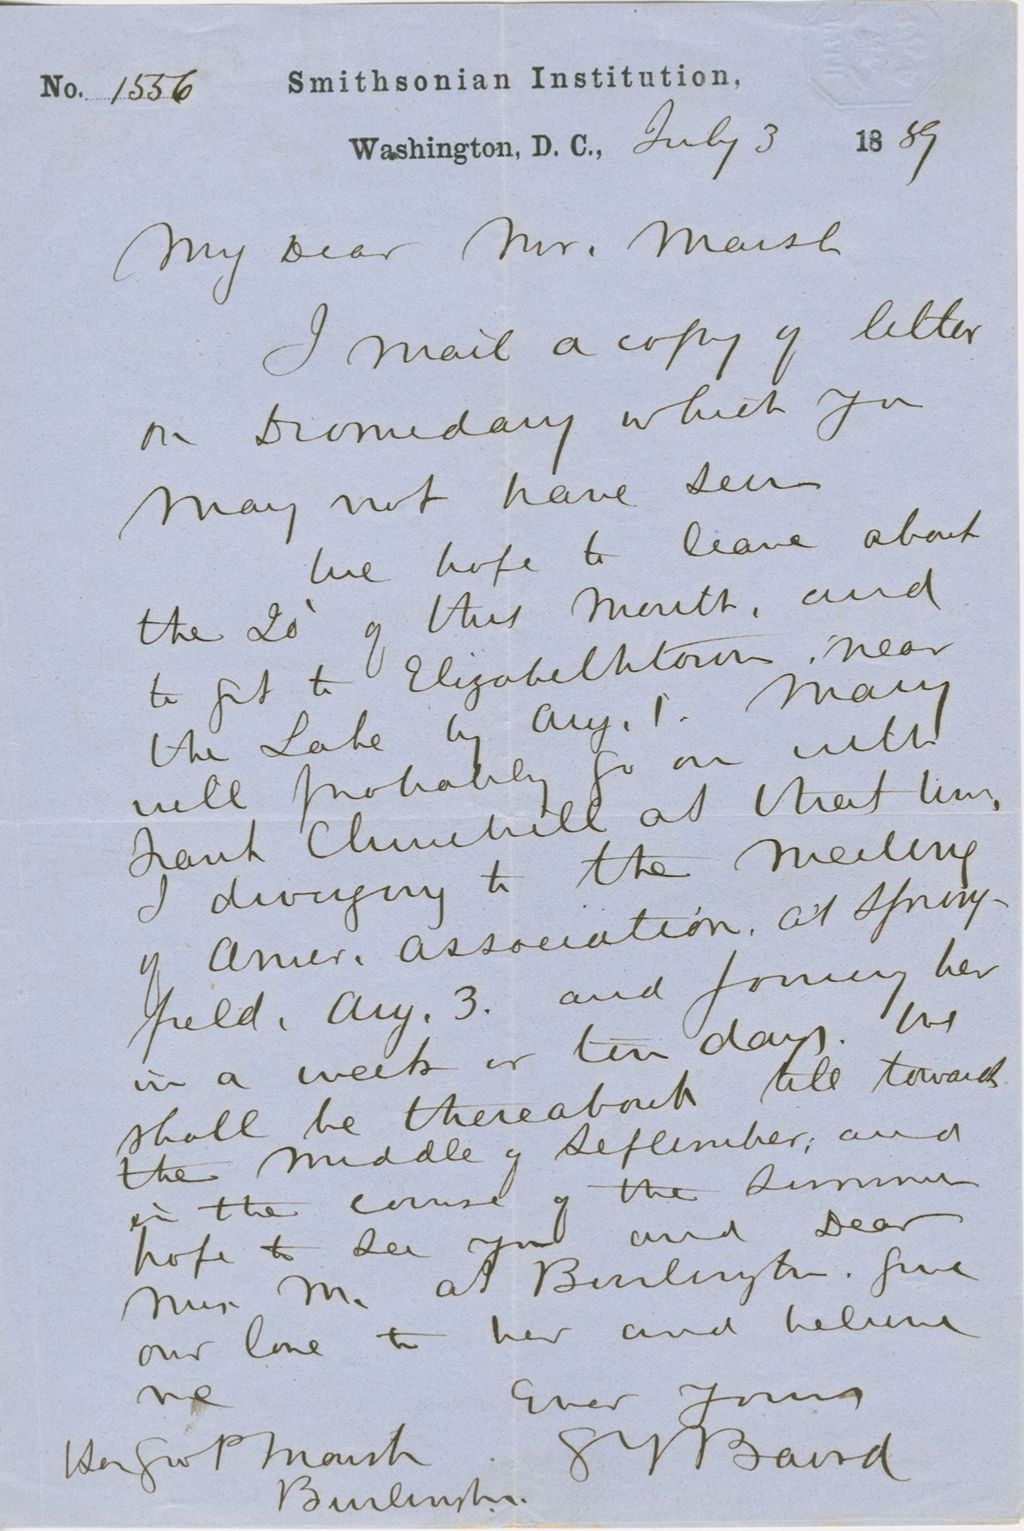 No. 1556 Smithsonian Institution,
Washington, D. C., July 3 1889
My Dear Mr. Marsh
I mail a copy of letter
on Dromedary which you
may not have seen
We hope to leave about
the 25 of this month, and
to get to Elizabethtown near
the Lake by Aug. 1. Mary
will probably go on with
Frank Churchill at that time,
I diverging to the meeting
of Amer. Association, at Spring-
field, Aug. 3. and joining her
in a week or ten days. We
shall be thereabouts till towards
the middle of September, and
in the course of the summer
hope to see you and Dear
Mrs. M. at Burlington. Give
our love to her and believe
me Ever yours
S F Baird
Hon Geo P Marsh
Burlington.